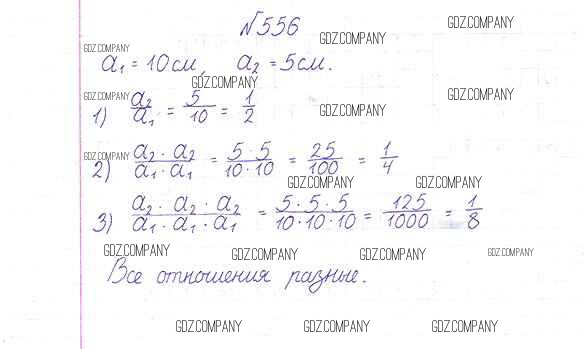 №556
GDZ.COMPANY GDZ.COMPANY GDZ.COMPANY
a₁ = 10 см, a₂ = 5 см.
GDZ.COMPANY GDZ.COMPANY GDZ.COMPANY GDZ.COMPANY
1) a₂/a₁ = 5/10 = 1/2
2) a₂ · a₂/a₁ · a₁ = 5 · 5/10 · 10 = 25/100 = 1/4
GDZ.COMPANY GDZ.COMPANY GDZ.COMPANY
3) a₂ · a₂ · a₂/a₁ · a₁ · a₁ = 5 · 5 · 5/10 · 10 · 10 = 125/1000 = 1/8
GDZ.COMPANY GDZ.COMPANY GDZ.COMPANY GDZ.COMPANY
Все отношения разные.
GDZ.COMPANY GDZ.COMPANY GDZ.COMPANY